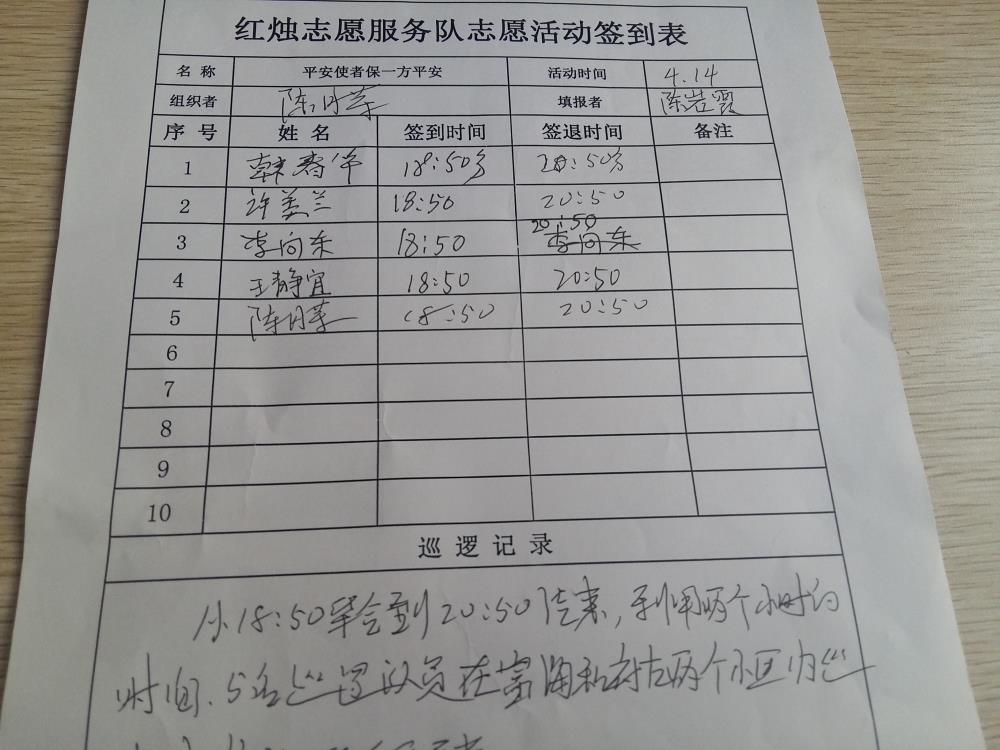 红烛志愿服务队志愿活动签到表
名 称 平安使者保一方平安 活动时间 4.14
组织者 陈月莘 填报者 陈岩霞
序 号 姓 名 签到时间 签退时间 备注
1 韩春华 18:50分 20:50分
2 许美兰 18:50 20:50
20:50
3 李向东 18:50 李向东
4 王静宜 18:50 20:50
5 陈月莘 18:50 20:50
6
7
8
9
10
巡 逻 记 录
从18:50集合到20:50结束,利用两个小时的
时间,5名巡逻队员在富海和村左两个小区内巡